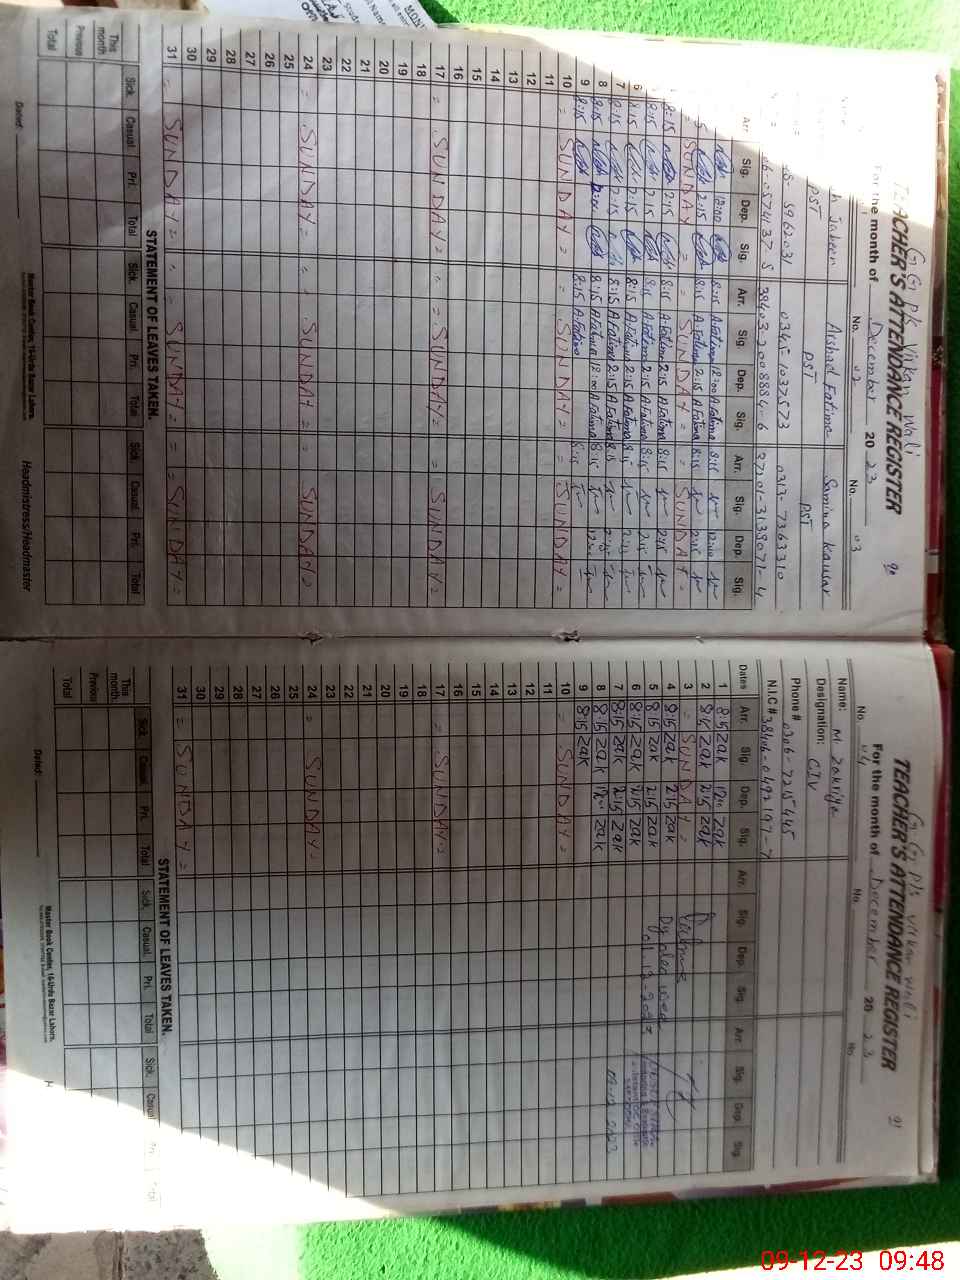 G G P/S Virkan Wali
TEACHER'S ATTENDANCE REGISTER
90
For the month of December 20 23
No. 02
No. 03
h Jabeen
Arshad Fatima
Samina Kausar
PST
PST
PST
5962031
0345 1037573
0313-7363310
38403-2008884-6
37201-3139071-4
Arr. Sig. Dep. Sig. Arr. Sig. Dep. Sig. Arr. Sig. Dep. Sig.
8:15 A.Fatima 12:00 A.Fatima 8:15 12:00
2:15 8:15 A.Fatima 2:15 A.Fatima 8:15 2:15
= SUNDAY = = SUNDAY = = SUNDAY =
8:15 2:15 8:15 A.Fatima 2:15 A.Fatima 8:15 2:15
8:15 2:15 8:15 A.Fatima 2:15 A.Fatima 8:15 2:15
6 8:15 2:15 8:15 A.Fatima 2:15 A.Fatima 8:15 2:15
7 8:15 2:15 8:15 A.Fatima 2:15 A.Fatima 8:15 2:15
8 8:15 12:00 8:15 A.Fatima 12:00 A.Fatima 8:15 12:00
9 8:15 8:15 A.Fatima 8:15
10 = SUNDAY = = SUNDAY = = SUNDAY =
11
12
13
14
15
16
17 = SUNDAY = = SUNDAY = = SUNDAY =
18
19
20
21
22
23
24 = SUNDAY = = SUNDAY = = SUNDAY =
25
26
27
28
29
30
31 = SUNDAY = = SUNDAY = = SUNDAY =
STATEMENT OF LEAVES TAKEN.
Sick. Casual. Pri. Total Sick. Casual. Pri. Total Sick. Casual. Pri. Total
This month
Previous
Total
Dated:
Master Book Center, 16-Urdu Bazar Lahore.
Headmistress/Headmaster
G G P/S Virkan Wali
TEACHER'S ATTENDANCE REGISTER
91
For the month of December 20 23
No. 04
No.
No.
Name: M Zakriya
Designation: CIV
Phone # 0306-7215445
N.I.C # 38406-0492197-7
Dates Arr. Sig. Dep. Sig. Arr. Sig. Dep. Sig. Arr. Sig. Dep. Sig.
1 8:15 Zak 12:00 Zak
2 8:15 Zak 2:15 Zak
3 = SUNDAY =
4 8:15 Zak 2:15 Zak
5 8:15 Zak 2:15 Zak
6 8:15 Zak 2:15 Zak
7 8:15 Zak 2:15 Zak
8 8:15 Zak 12:00 Zak
9 8:15 Zak
10 = SUNDAY =
11
12
13
14
15
16
17 = SUNDAY =
18
19
20
21
22
23
24 = SUNDAY =
25
26
27
28
29
30
31 = SUNDAY =
STATEMENT OF LEAVES TAKEN.
Sick. Casual. Pri. Total Sick. Casual. Pri. Total Sick. Casual. Pri. Total
This month
Previous
Total
Dated:
Master Book Center, 16-Urdu Bazar Lahore.
09-12-23 09:48